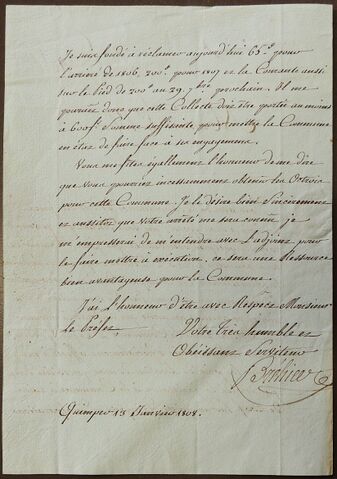 Je suis fondé à réclamer aujourd'hui 65.ᶠ pour
l'arriéré de 1806, 200.ᶠ pour 1807 et la Courante aussi
sur le pied de 200ᶠ au 29. 7.bre prochain. Il me
paroitroit donc que cette Collecte doit être portée au moins
à 600f. Somme suffisante, pour mettre la Commune
en état de faire face à ses engagemens.
Vous me fites également l'honneur de me dire
que vous pourriez incessamment obtenir les Octrois
pour cette Commune. Je le désire bien Sincèrement
et aussitot que votre arrêté me sera connu je
m'empresserai de m'entendre avec l'adjoint pour
le faire mettre à exécution, ce sera une Ressource
bien avantageuse pour la Commune.
J'ai l'honneur d'être avec Respect Monsieur
le Préfet,
Votre très humble et
Obéissant Serviteur
Quimper 13 Janvier 1808.